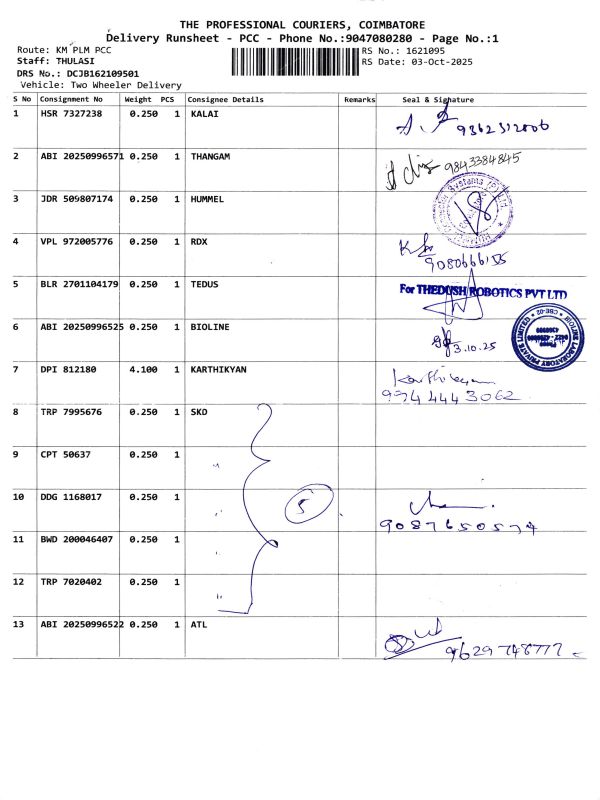 THE PROFESSIONAL COURIERS, COIMBATORE
Delivery Runsheet - PCC - Phone No.:9047080280 - Page No.:1
Route: KM PLM PCC
RS No.: 1621095
Staff: THULASI
RS Date: 03-Oct-2025
DRS No.: DCJB162109501
Vehicle: Two Wheeler Delivery
S No Consignment No Weight PCS Consignee Details Remarks Seal & Signature
1 HSR 7327238 0.250 1 KALAI
2 ABI 20250996571 0.250 1 THANGAM
9843384845
3 JDR 509807174 0.250 1 HUMMEL
4 VPL 972005776 0.250 1 RDX
5 BLR 2701104179 0.250 1 TEDUS
For THEDUSH ROBOTICS PVT LTD
6 ABI 20250996525 0.250 1 BIOLINE
3.10.25
BIOLINE LABORATORY PRIVATE LIMITED
CBE-02
7 DPI 812180 4.100 1 KARTHIKYAN
Karthikeyan
9944443062
8 TRP 7995676 0.250 1 SKD
9 CPT 50637 0.250 1 "
10 DDG 1168017 0.250 1 "
5
9087650574
11 BWD 200046407 0.250 1 "
12 TRP 7020402 0.250 1 "
13 ABI 20250996522 0.250 1 ATL
9629748777